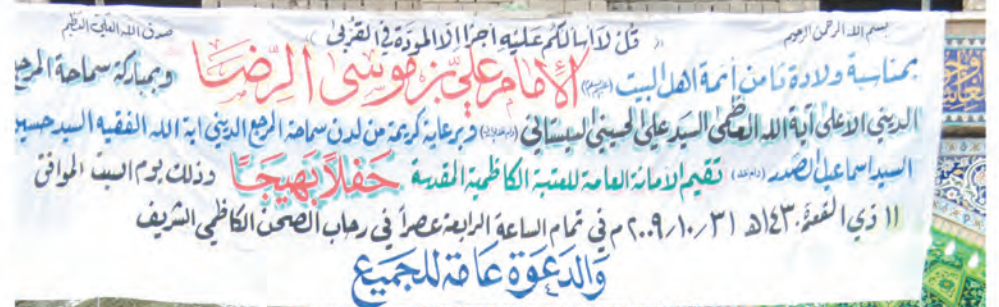 بسم الله الرحمن الرحيم
« قل لا اسالكم عليه اجرًا إلا المودة في القربى »
صدق الله العلي العظيم
بمناسبة ولادة ثامن أئمة اهل البيت (عليهم السلام) الأمام علي بن موسى الرضا وبمباركة سماحة المرجع
الديني الأعلى آية الله العظمى السيد علي الحسيني السيستاني (دام ظله) وبرعاية كريمة من لدن سماحة المرجع الديني اية الله الفقيه السيد حسين
السيد اسماعيل الصدر (دام ظله) تقيم الأمانة العامة للعتبة الكاظمية المقدسة حفلاً بهيجًا وذلك يوم السبت الموافق
١١ ذي القعدة ١٤٣٠هـ ٣١/١٠/٢٠٠٩م في تمام الساعة الرابعة عصراً في رحاب الصحن الكاظمي الشريف
والدعوة عامة للجميع